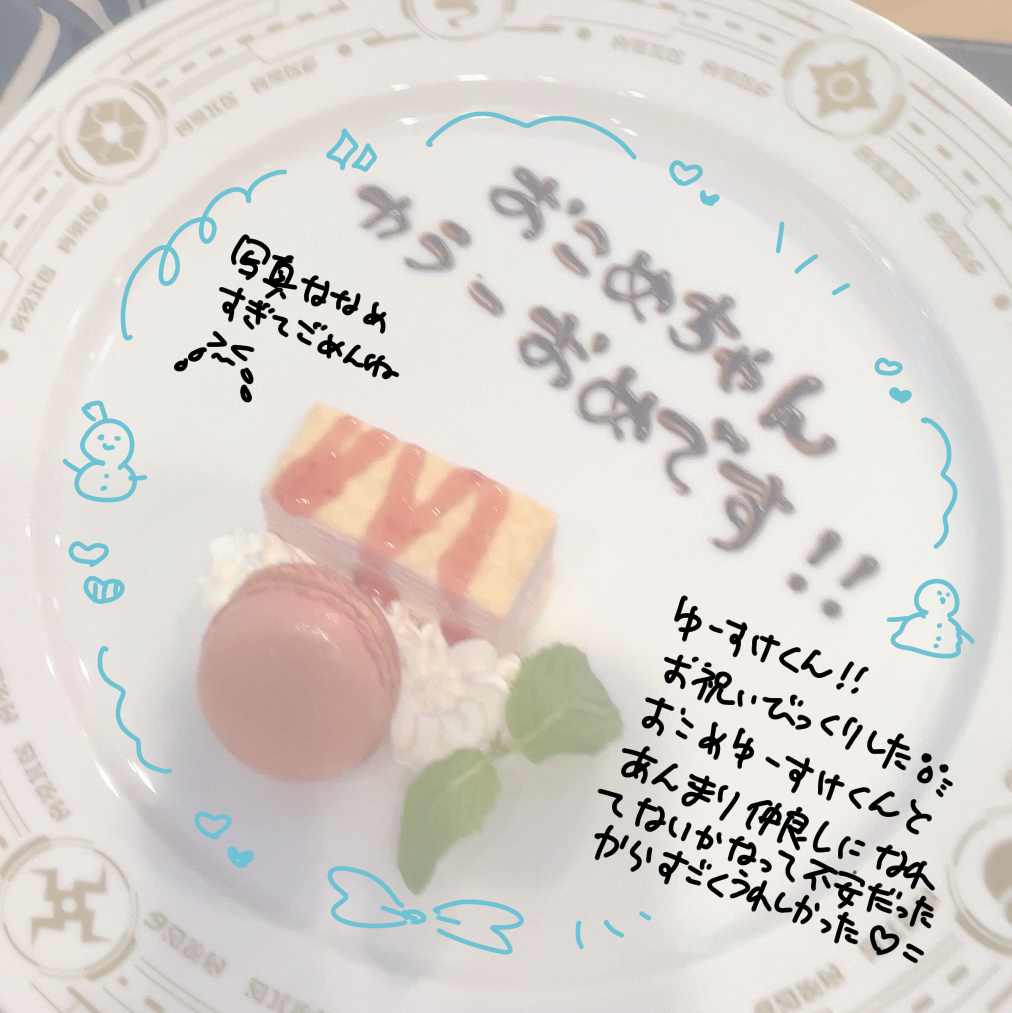 おこめちゃん
カラーおめです!!
写真ななめ
すぎてごめんね
ゆーすけくん!!
お祝いびっくりした
おこめゆーすけくんと
あんまり仲良しになれ
てないかなって不安だった
からすごくうれしかった♡=